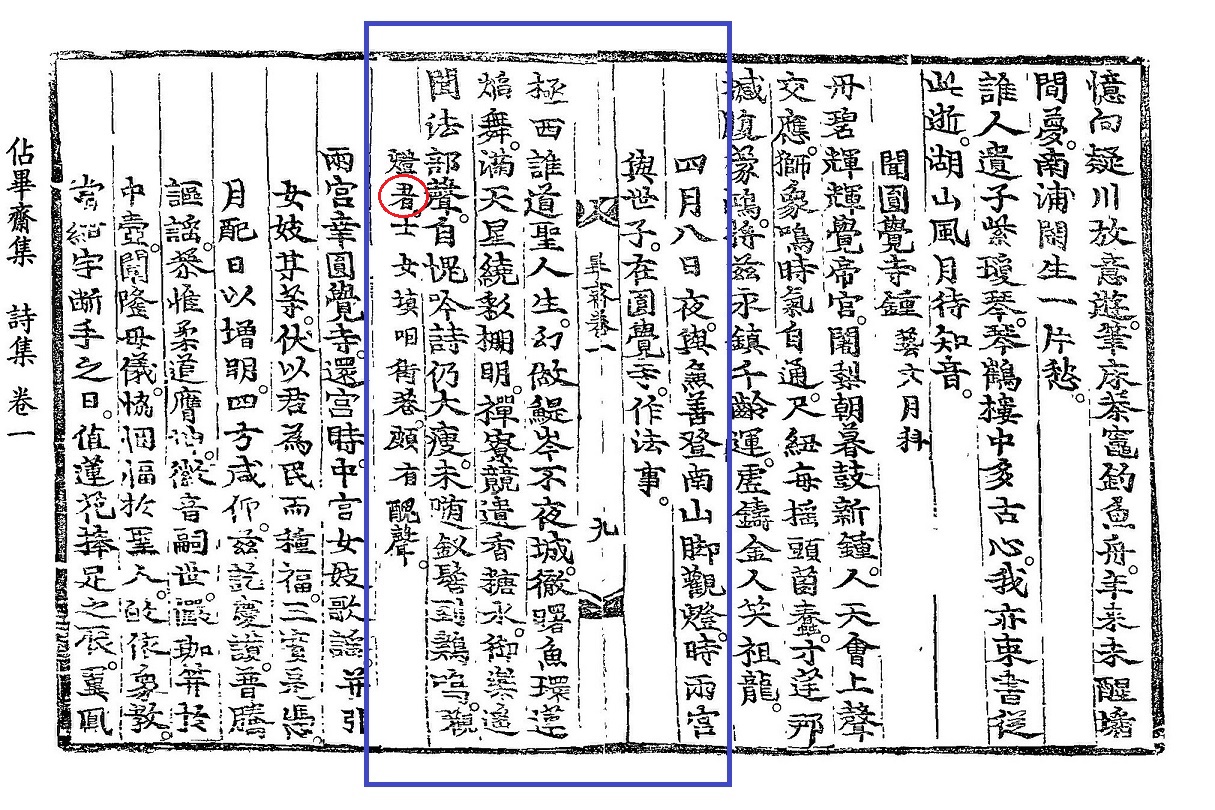 憶向疑川放意遊筆床茶竈釣魚舟年来未醒
間夢。南浦閑生一片愁。
誰人遺子紫瓊琴。琴鶴樓中多古心。我亦束書從
此逝。湖山風月待知音。
聞圓覺寺鍾 藝文月科
丹碧輝輝覺帝宮。闍梨朝暮鼓新鍾。人天會上聲
交應。獅象鳴時氣自通。尺紐每摇頭菌蠢。才逢
腹。將兹永鎮千齡運。虛鑄金人笑祖龍。
四月八日夜。與魚善登南山脚觀燈。時兩宮
與世子。在圓覺寺。作法事。
畢齋卷一 九
極西誰道聖人生。幻做鯷岑不夜城。徹曙魚環蓮
焰舞。滿天星繞彩棚明。禪寮競遺香糖水。御樂遙
聞法部聲。自愧吟詩仍大瘦。未晡釵髻到鷄鳴。觀
燈者。士女塡咽街巷。頗有醜聲。
兩宮幸圓覺寺。還宮時。中宮女妓歌謠。并引
女妓某等。伏以君為民而種福。三寳是憑。
月配日以增明。四方咸仰。兹訖慶讃。普騰
謳謠。恭惟柔道膺坤。徽音嗣世。儷珈笄於
中壼。闡隆母儀。恊悃愊於聖人。依象教。
當紺宇斷手之日。值蓮花捧足之辰。翼鳳
佔畢齋集 詩集 卷一